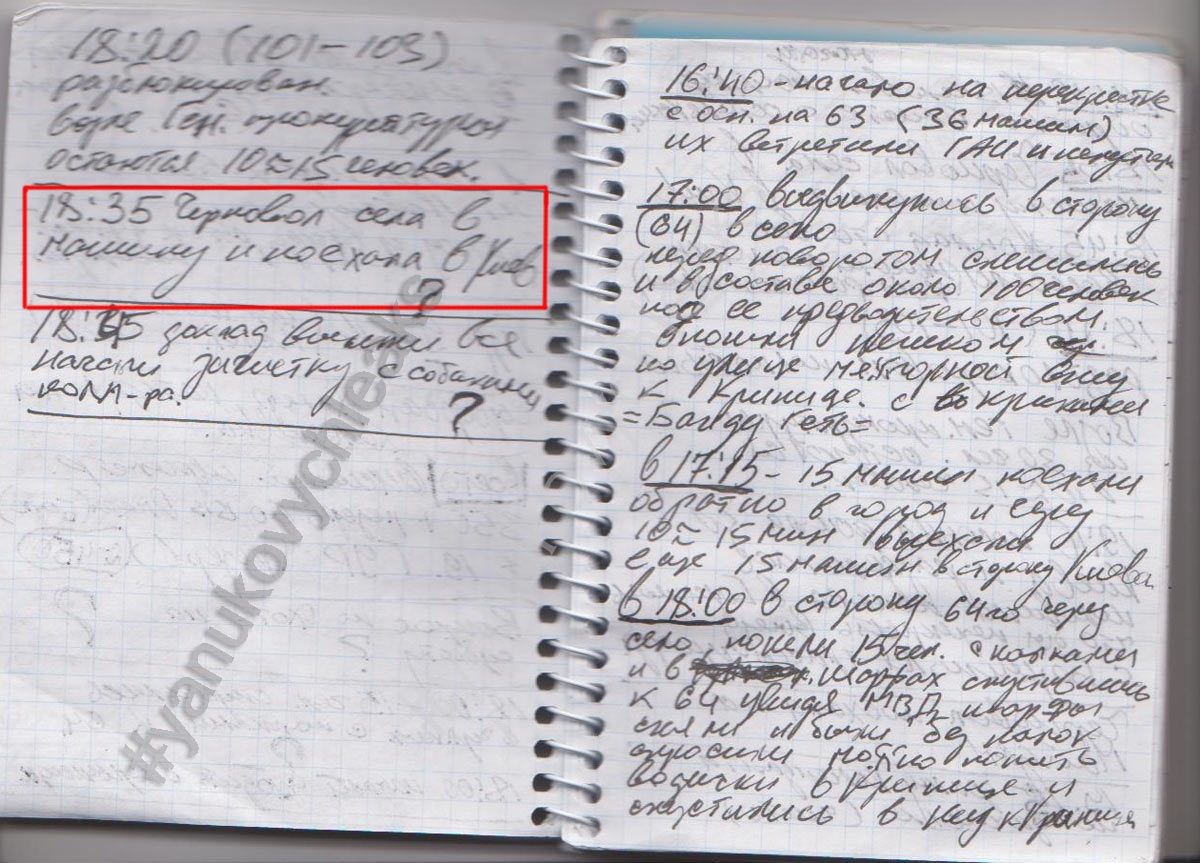 18:20 (101-103)
разблокирован.
возле Ген. прокуратуры
остаются 10-15 человек.
18:35 Черновол села в
машину и поехала в Киев
?
18:45 заслад
начали зачистку с собаками
?
#yanukovychleaks
16:40 - начало на перекрестке
с осн. на 63 (36 машин)
их встретили ГАИ и
17:00 выдвинулись в сторону
(64) в село
перед поворотом спешились
и в составе около 100 человек
под ее предводительством.
пошли пешком
по улице вниз
к Кринице. с выкриками
=Банду Геть=
в 17:15 - 15 машин поехали
обратно в город и через
10-15 мин выехали
еще 15 машин в сторону Киева
в 18:00 в сторону 64го через
село пошли 15 чел. с палками
и в шарфах спустившись
к 64 увидя МВД шарфы
сняли и были без палок
спросили можно попить
водички в Кринице и
спустились вниз к Кринице